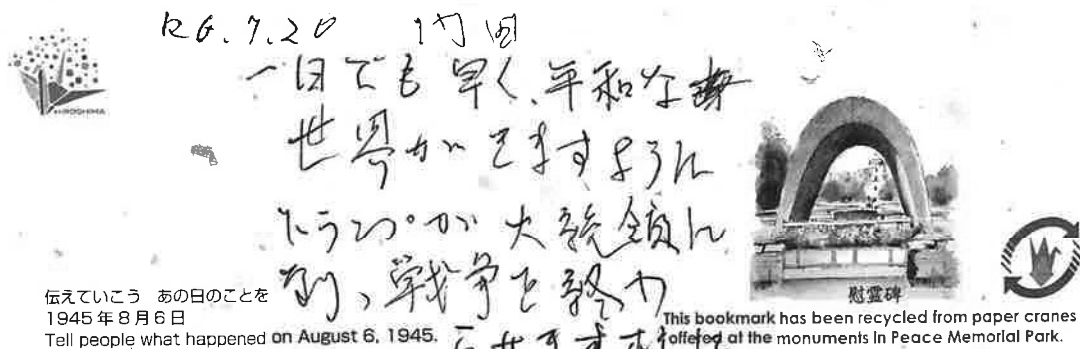 R6.7.20 内田
一日でも早く、平和な
世界がきますように
トランプが大統領に
なり、戦争を終わ
HIROSHIMA
慰霊碑
伝えていこう あの日のことを
1945年8月6日
Tell people what happened on August 6, 1945.
This bookmark has been recycled from paper cranes
offered at the monuments in Peace Memorial Park.